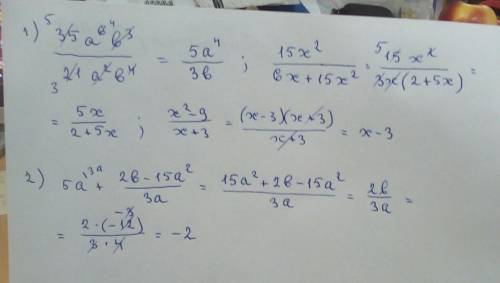 1) ⁵3̶5̶a⁶̶ ⁴b³̶ / ₃2̶1̶ a²̶b⁴̶ = 5a⁴ / 3b ; 15x² / 6x + 15x² = ⁵1̶5̶ x²̶ / 3̶x̶(2+5x) =
= 5x / 2+5x ; x² - 9 / x + 3 = (x-3)(x+3) / x+3 = x - 3
2) 5a^{\3a} + 2b - 15a² / 3a = 15a² + 2b - 15a² / 3a = 2b / 3a =
= 2 · (-12) ⁻³ / 3 · 4 = -2